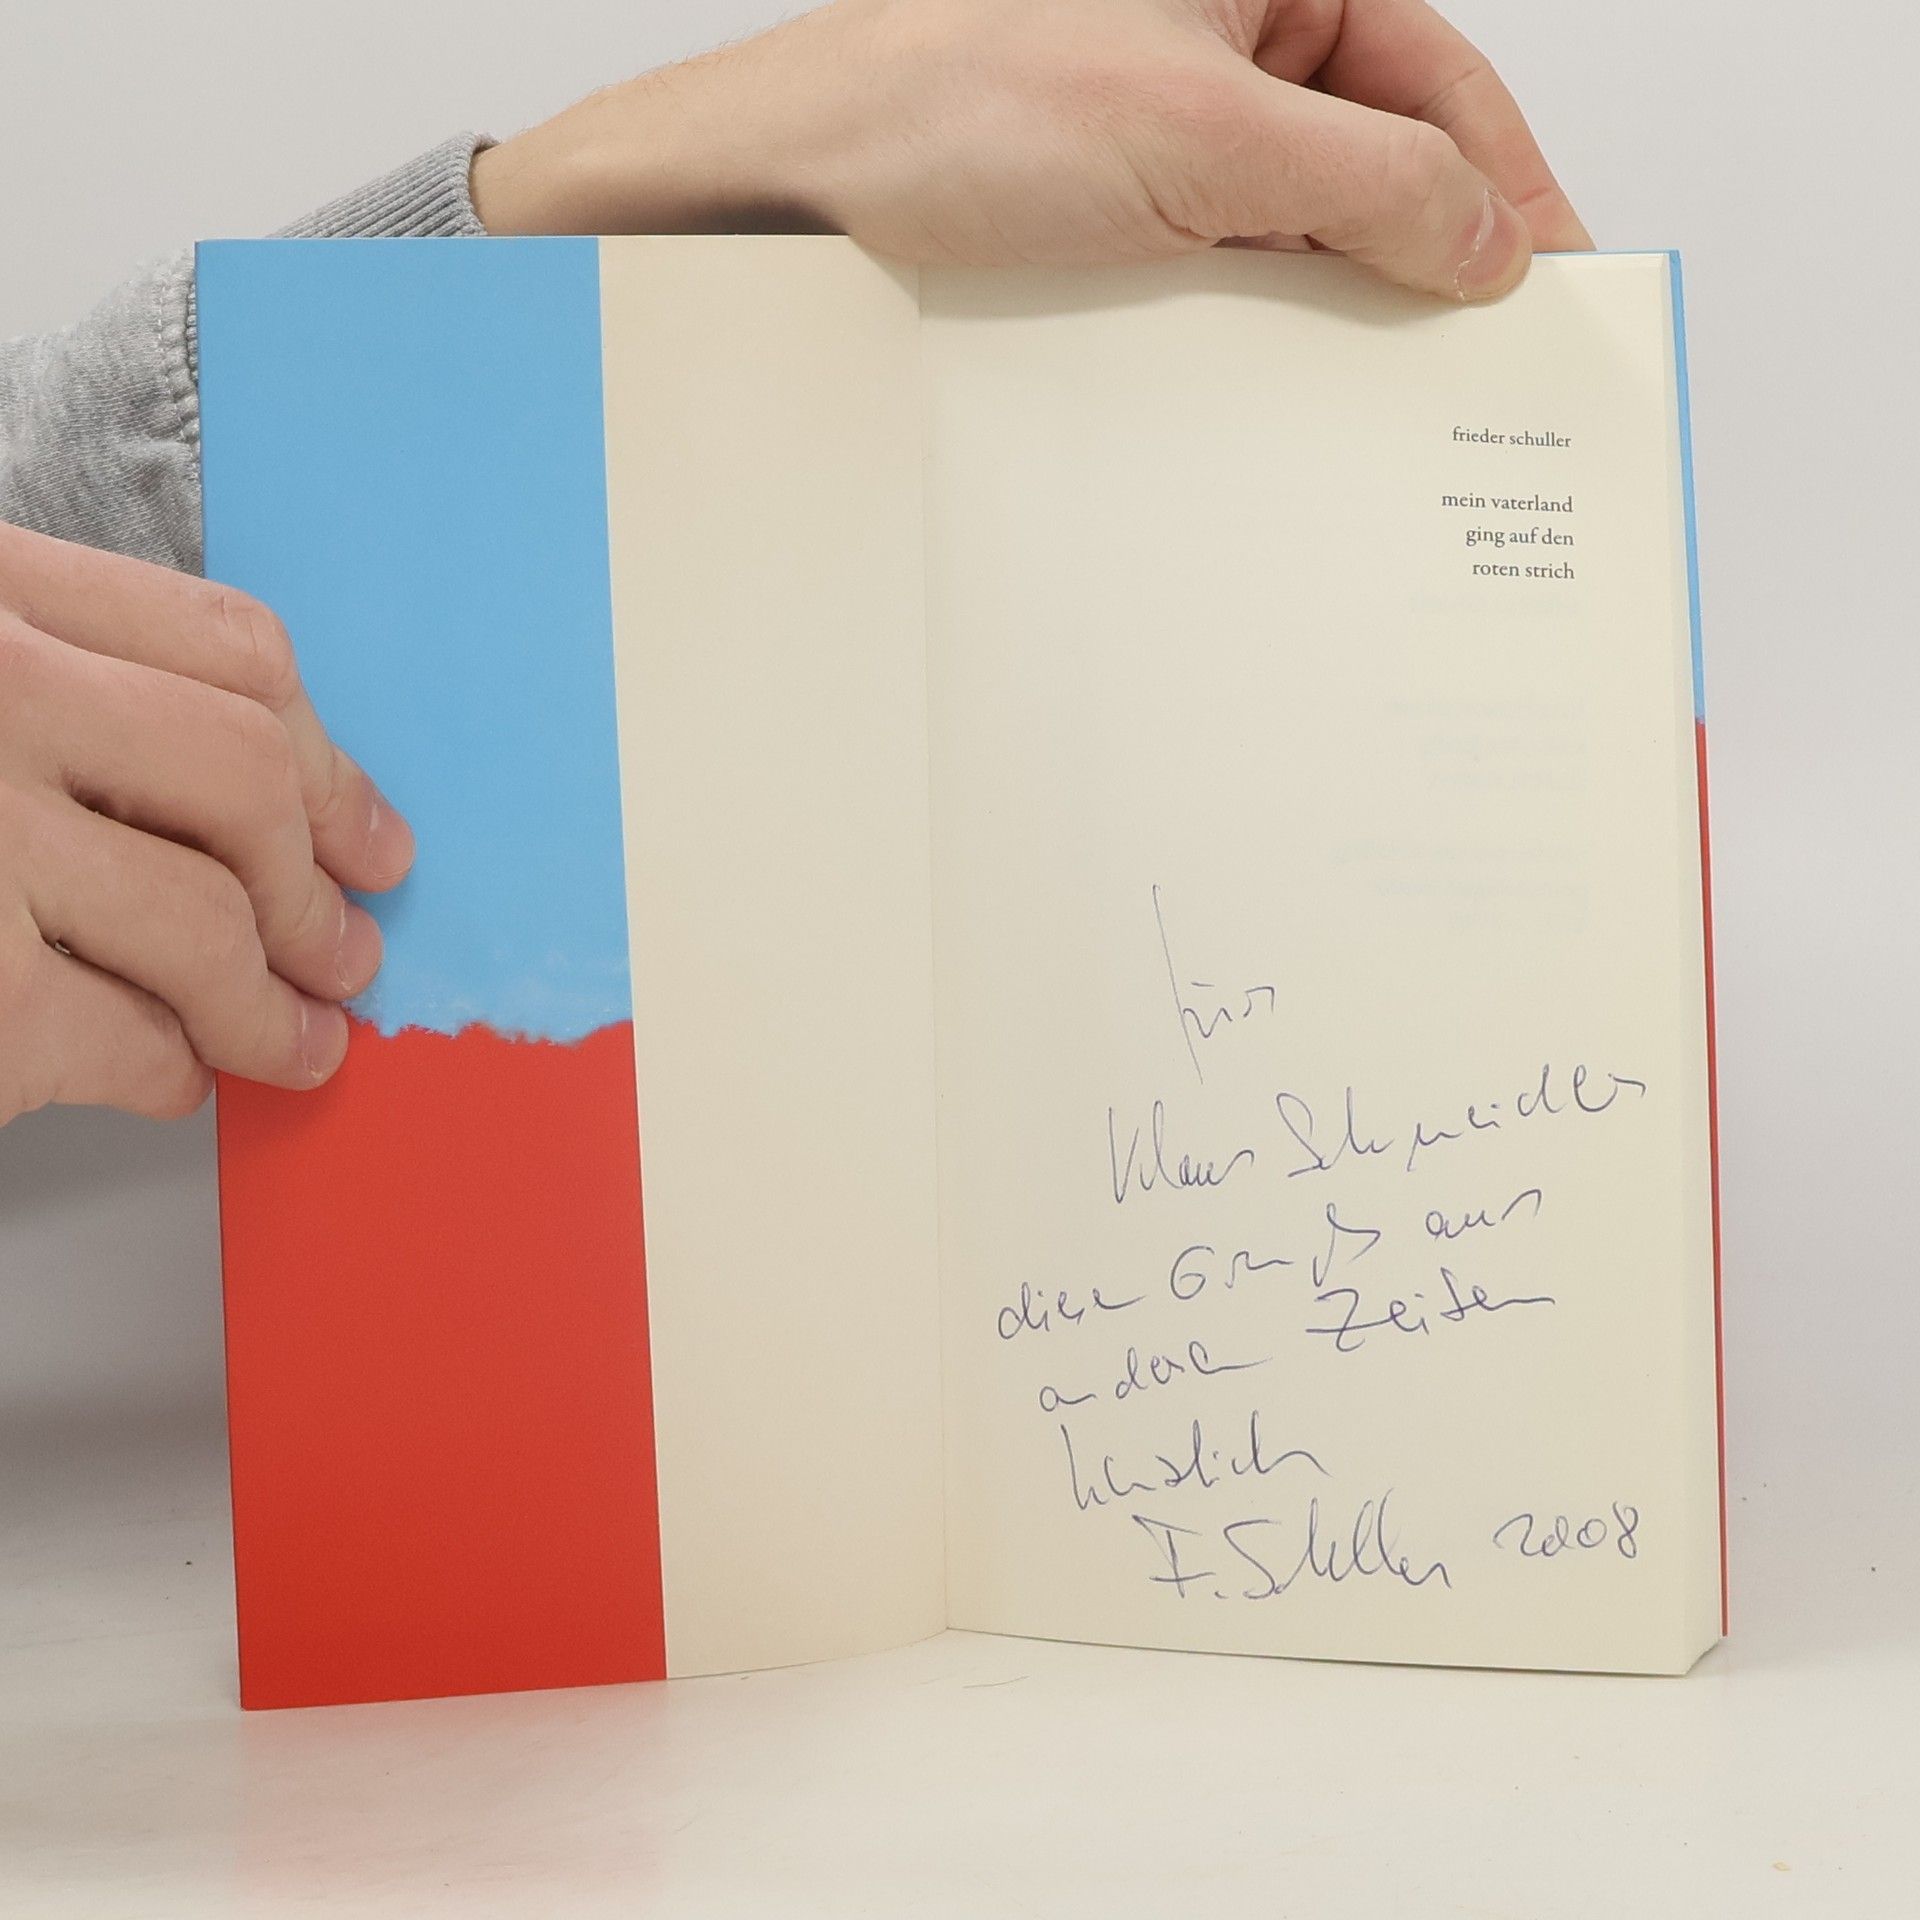 frieder schuller
mein vaterland
ging auf den
roten strich
für
Klaus Schneider
diesen Gruß aus
anderen Zeiten
herzlich
F. Schuller 2008